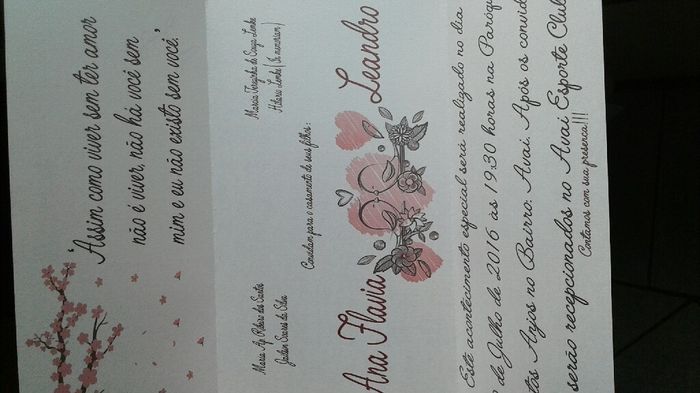 'Assim como viver sem ter amor
não é viver, não há você sem
mim e eu não existo sem você.'
Maria Ap Ribeiro dos Santos
Jaclen Soares da Silva
Marcia Terezinha de Souza Lemke
Hilario Lemke (in memorian)
Convidam para o casamento de seus filhos:
Ana Flavia
Leandro
Este acontecimento especial será realizado no dia
de Julho de 2016 às 19:30 horas na Paróqu
tos Anjos no Bairro: Avaí. Após os convid
serão recepcionados no Avaí Esporte Club
Contamos com sua presença!!!